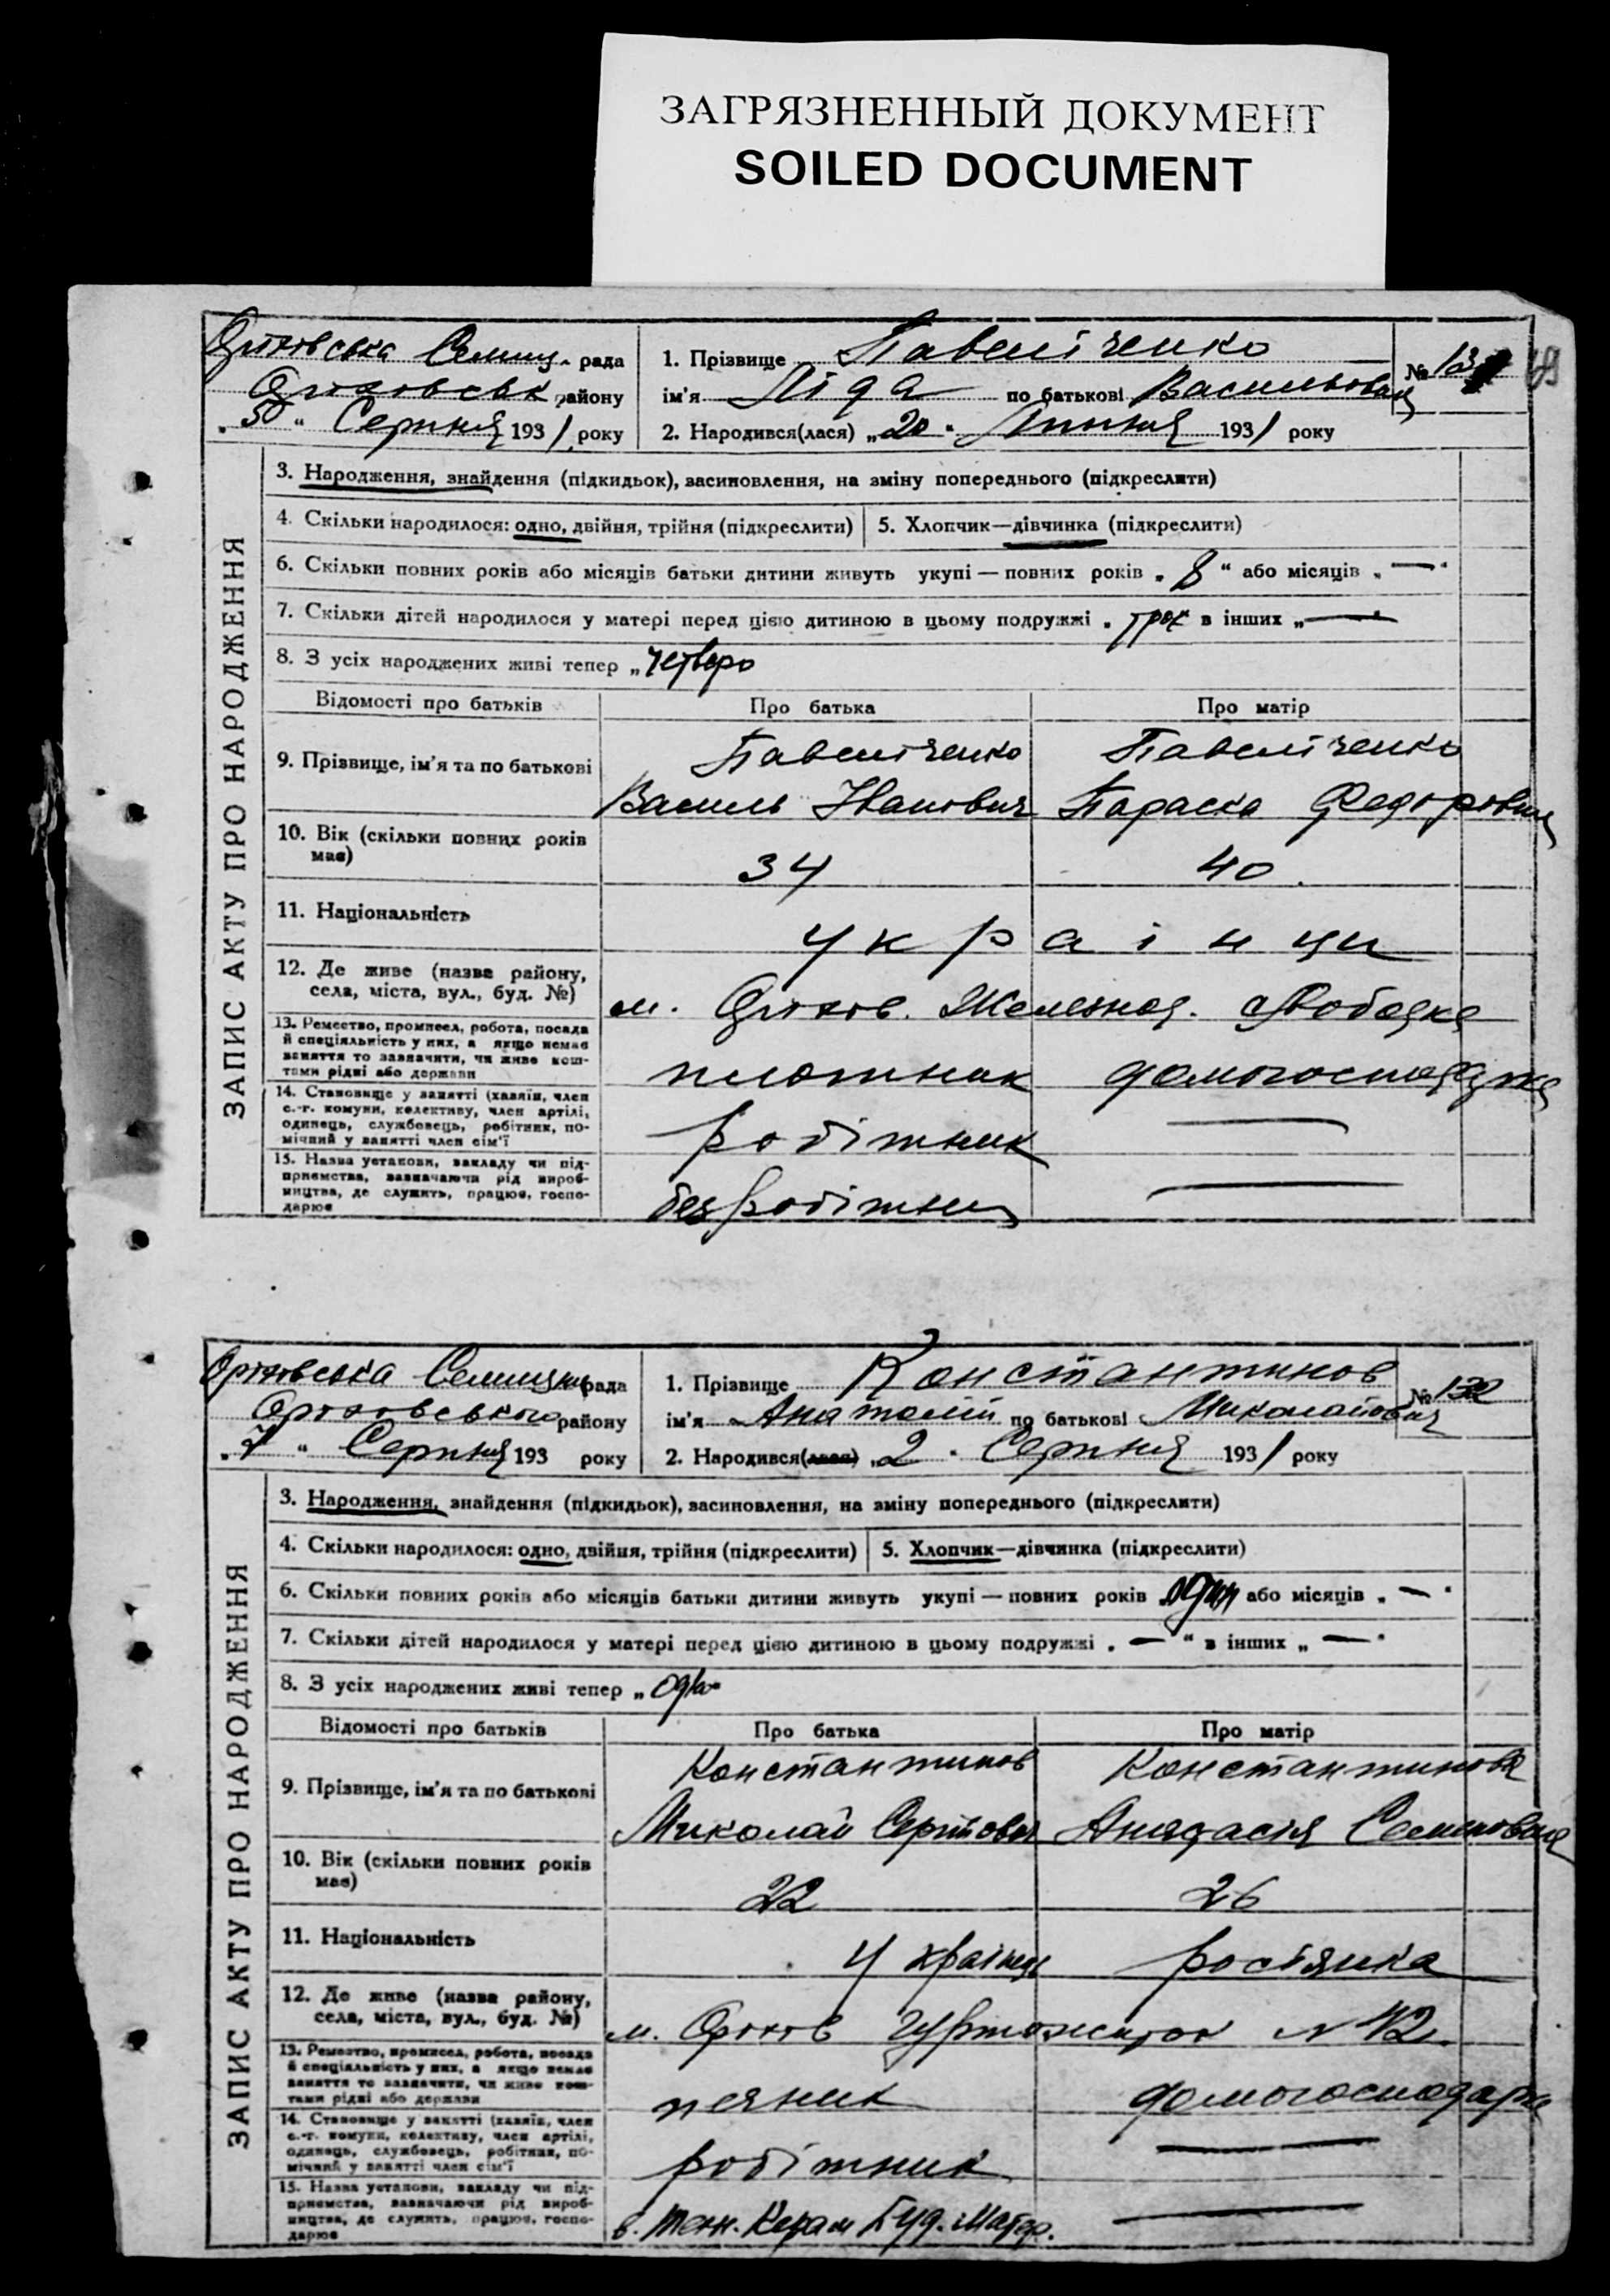 ЗАГРЯЗНЕННЫЙ ДОКУМЕНТ
SOILED DOCUMENT
рада
району
Серпня 1931 року
1. Прізвище Павеліченко
ім'я Ліда по батькові Васильовна
№
2. Народився(лася) „20“ Липня 1931 року
ЗАПИС АКТУ ПРО НАРОДЖЕННЯ
3. Народження, знайдення (підкидьок), засиновлення, на зміну попереднього (підкреслити)
4. Скільки народилося: одно, двійня, трійня (підкреслити)
5. Хлопчик—дівчинка (підкреслити)
6. Скільки повних років або місяців батьки дитини живуть укупі — повних років „8“ або місяців „—“
7. Скільки дітей народилося у матері перед цією дитиною в цьому подружжі „трое“ в інших „—“
8. З усіх народжених живі тепер „четверо
Відомості про батьків
Про батька
Про матір
9. Прізвище, ім'я та по батькові
Павеліченко
Василь Іванович
Павеліченко
Параска Федоровна
10. Вік (скільки повних років має)
34
40
11. Національність
українци
12. Де живе (назва району, села, міста, вул., буд. №)
м. Оріхов. Железная. Слободка
13. Ремество, промисел, робота, посада й спеціяльність у них, а якщо немає заняття то зазначити, чи живе коштами рідні або держави
плотник
домогосподарка
14. Становище у занятті (хазяїн, член с.-г. комуни, колективу, член артілі, одинець, службовець, робітник, помічний у занятті член сім'ї
робітник
—
15. Назва установи, закладу чи підприємства, зазначаючи рід виробництва, де служить, працює, господарює
безробітний
—
Оріхівська рада
Оріховського району
„7“ Серпня 193 року
1. Прізвище Константинов
ім'я Анатолій по батькові Миколайович
№ 132
2. Народився(лася) „2“ Серпня 1931 року
ЗАПИС АКТУ ПРО НАРОДЖЕННЯ
3. Народження, знайдення (підкидьок), засиновлення, на зміну попереднього (підкреслити)
4. Скільки народилося: одно, двійня, трійня (підкреслити)
5. Хлопчик—дівчинка (підкреслити)
6. Скільки повних років або місяців батьки дитини живуть укупі — повних років „один або місяців „—“
7. Скільки дітей народилося у матері перед цією дитиною в цьому подружжі „—“ в інших „—“
8. З усіх народжених живі тепер „одно“
Відомості про батьків
Про батька
Про матір
9. Прізвище, ім'я та по батькові
Константинов
Миколай
Константинова
Анастасія Семеновна
10. Вік (скільки повних років має)
22
26
11. Національність
українець
росіянка
12. Де живе (назва району, села, міста, вул., буд. №)
м. Оріхов Гуртожиток № 42
13. Ремество, промисел, робота, посада й спеціяльність у них, а якщо немає заняття то зазначити, чи живе коштами рідні або держави
печник
домогосподарка
14. Становище у занятті (хазяїн, член с.-г. комуни, колективу, член артілі, одинець, службовець, робітник, помічний у занятті член сім'ї
робітник
—
15. Назва установи, закладу чи підприємства, зазначаючи рід виробництва, де служить, працює, господарює
в. техн. Керам Буд. Матер.
—